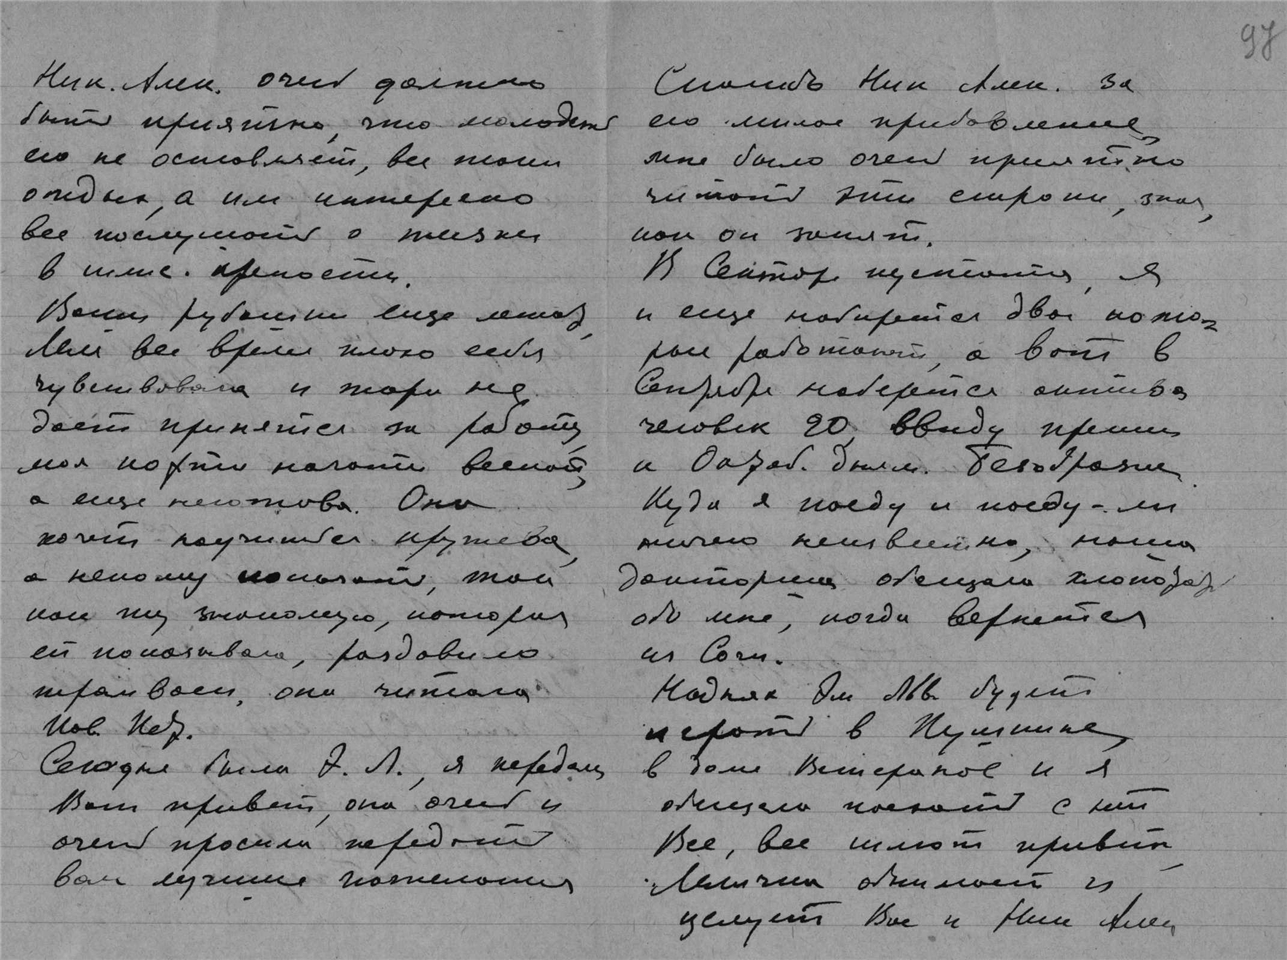 97
Ник. Алек. очень должно
быть приятно, что молодежь
его не оставляет, все такой
отдых, а им интересно
все послушать о жизни
в шлис. крепости.
Ваши рубашки еще лежат,
Леля все время плохо себя
чувствовала и жара не
дает принятся за работу,
моя кофта начата весной,
а еще неготова. Она
хочет научиться кружева,
а некому показать, той
как ту знакомую, которая
ей показывала, раздавило
трамваем, она читала
Сегодня была Э. Л., я передала
Ваш привет, она очень и
очень просила передать
вам лучшие пожелания
Спасибо Ник Алек. за
его милое прибавление,
мне было очень приятно
читать эти строки, зная,
как он занят.
В Секторе пустота, я
и еще наберется двое кото-
рые работают, а вот в
Сентябре наберется актива
человек 20, ввиду премии
и Октяб. дням. Безобразие
Куда я поеду и поеду-ли
ничего неизвестно, наша
докторша обещала хлопотать
обо мне, когда вернется
из Сочи.
На днях Эм Льв будет
играть в Пушкине,
в доме Ветеранов и я
обещала поехать с ней
Все, все шлют привет,
Леличка обнимает и
целует Вас и Ник Алек